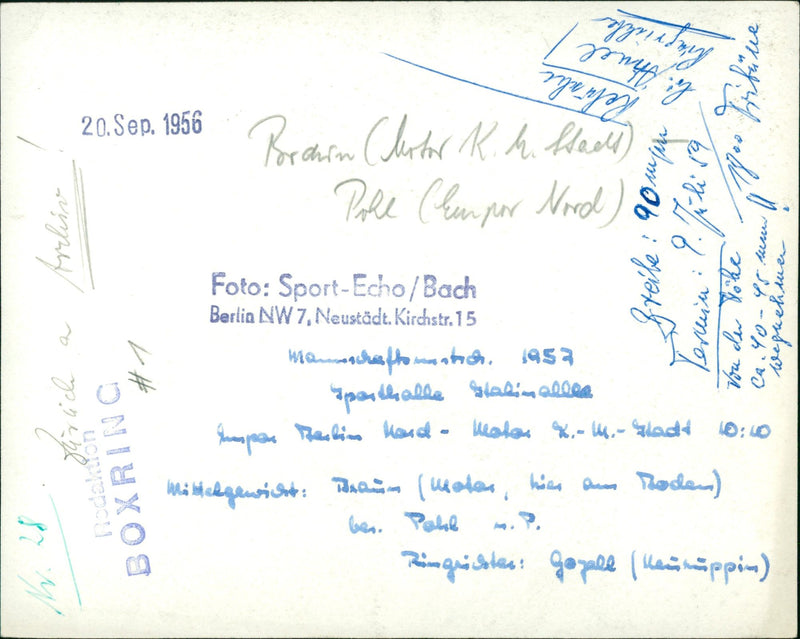 20. Sep. 1956
Braun (Motor K. M. Stadt) –
Pohl (Empor Nord)
Foto: Sport-Echo/Bach
Berlin NW 7, Neustädt. Kirchstr. 15
Mannschaftsmstsch. 1957
Sporthalle Stalinallee
Empor Berlin Nord - Motor K.-M.-Stadt 10:10
Mittelgewicht: Braun (Motor, hier am Boden)
bes. Pohl n. P.
Ringrichter: Gozell (Neuruppin)
Zurück a Archiv!
Redaktion
BOXRING
#1
Nr. 28
Retusche
Ringrichter
Breite: 90 mm
Termin: 9. Juli 59
Von der Höhe
ca. 40-45 mm
wegnehmen
1800 Tribüne